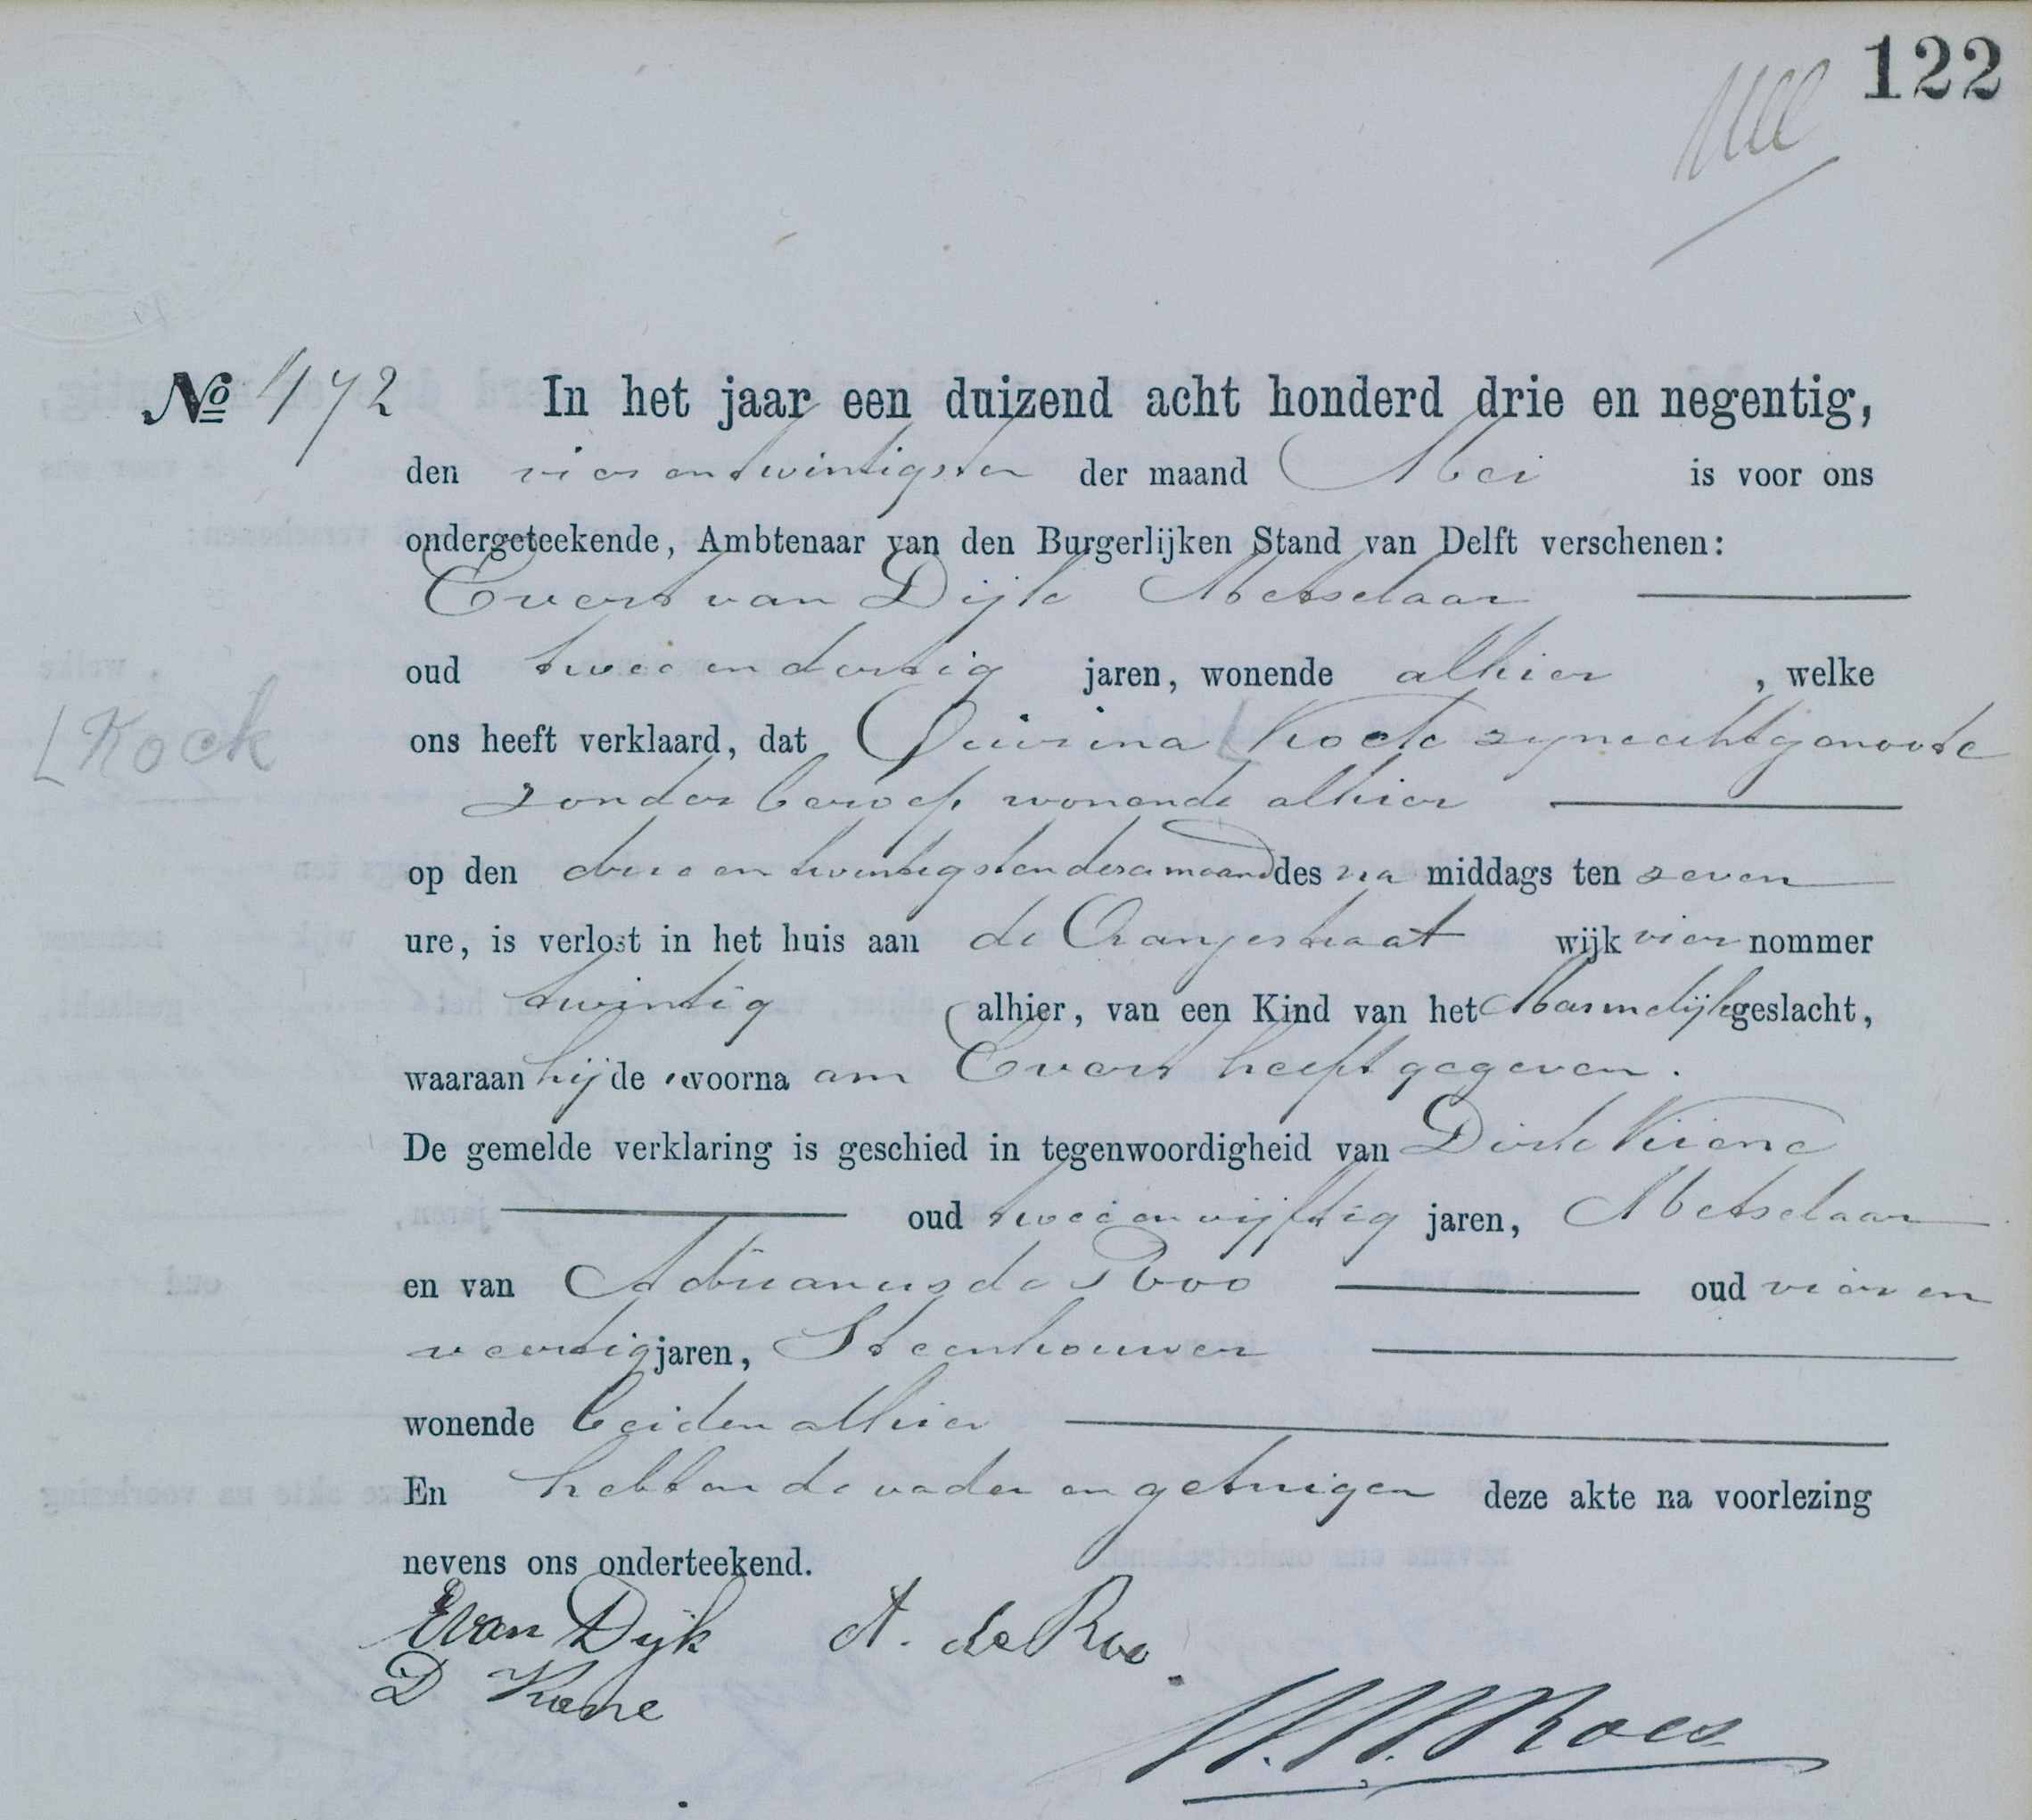 122
No 472 In het jaar een duizend acht honderd drie en negentig,
den vier en twintigsten der maand Mei is voor ons
ondergeteekende, Ambtenaar van den Burgerlijken Stand van Delft verschenen:
Evert van Dijk Metselaar
oud twee en dertig jaren, wonende alhier, welke
Kock
ons heeft verklaard, dat Quirina Kock zijne echtgenoote
zonder beroep wonende alhier
op den drie en twintigsten dezer maand des na middags ten zeven
ure, is verlost in het huis aan de Oranjestraat wijk vier nommer
twintig alhier, van een Kind van het Mannelijk geslacht,
waaraan hij de voornaam Evert heeft gegeven.
De gemelde verklaring is geschied in tegenwoordigheid van Dirk Kiene
oud twee en vijftig jaren, Metselaar
en van Adrianus de Roo oud vier en
veertig jaren, Steenhouwer
wonende beiden alhier
En hebben de vader en getuigen deze akte na voorlezing
nevens ons onderteekend.
E van Dijk A. de Roo.
D Kiene
Roes